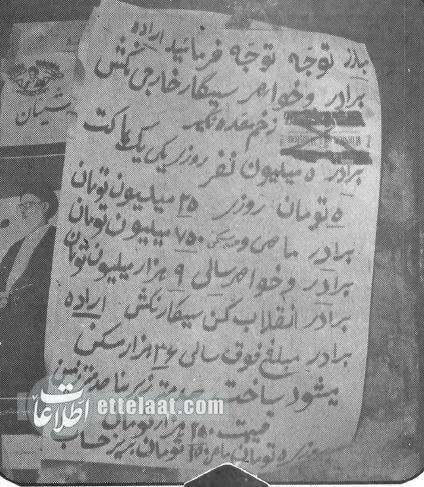 باز توجّه توجّه فرمائید اراده
برادر و خواهر سیگار خارجی نکش
زخم معده نگیر
برادر ۵ میلیون نفر روزی یک پاکت
۵ تومان روزی ۲۵ میلیون تومان
برادر ماهی و ۷۵۰ میلیون تومان
برادر و خواهر سالی ۹ هزار میلیون تومان
برادر انقلاب کن سیگار نکش اراده
برادر مبلغ فوق سالی ۳۶ هزار مسکن
میشود ساخت زیربنا صد متر زمین
قیمت ۲۵۰ هزار تومان
روزی ۵ تومان ماهی ۱۵۰ تومان بریز حساب
اطلاعات ettelaat.com